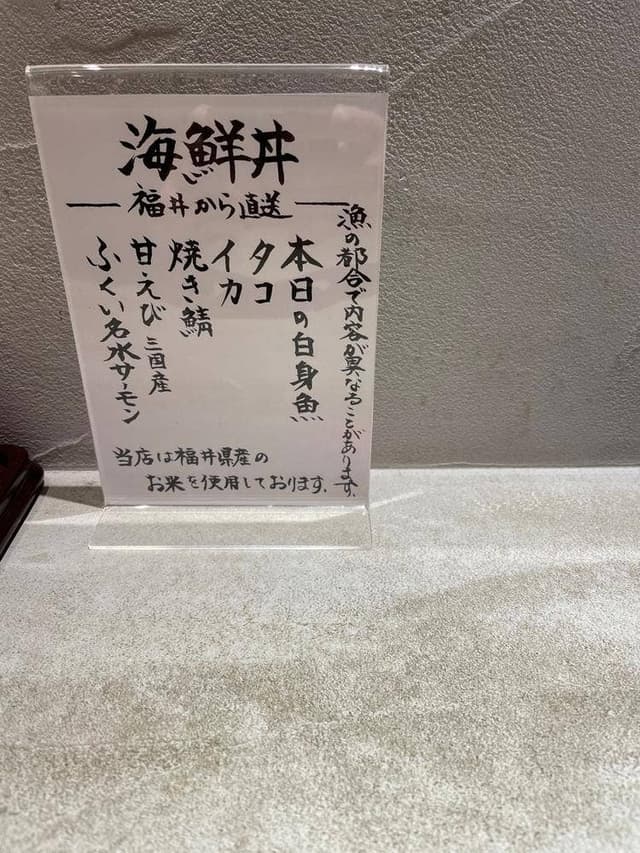 海鮮丼
福井から直送
漁の都合で内容が異なることがあります。
本日の白身魚
タコ
イカ
焼き鯖
甘えび 三国産
ふくい名水サーモン
当店は福井県産の
お米を使用しております。